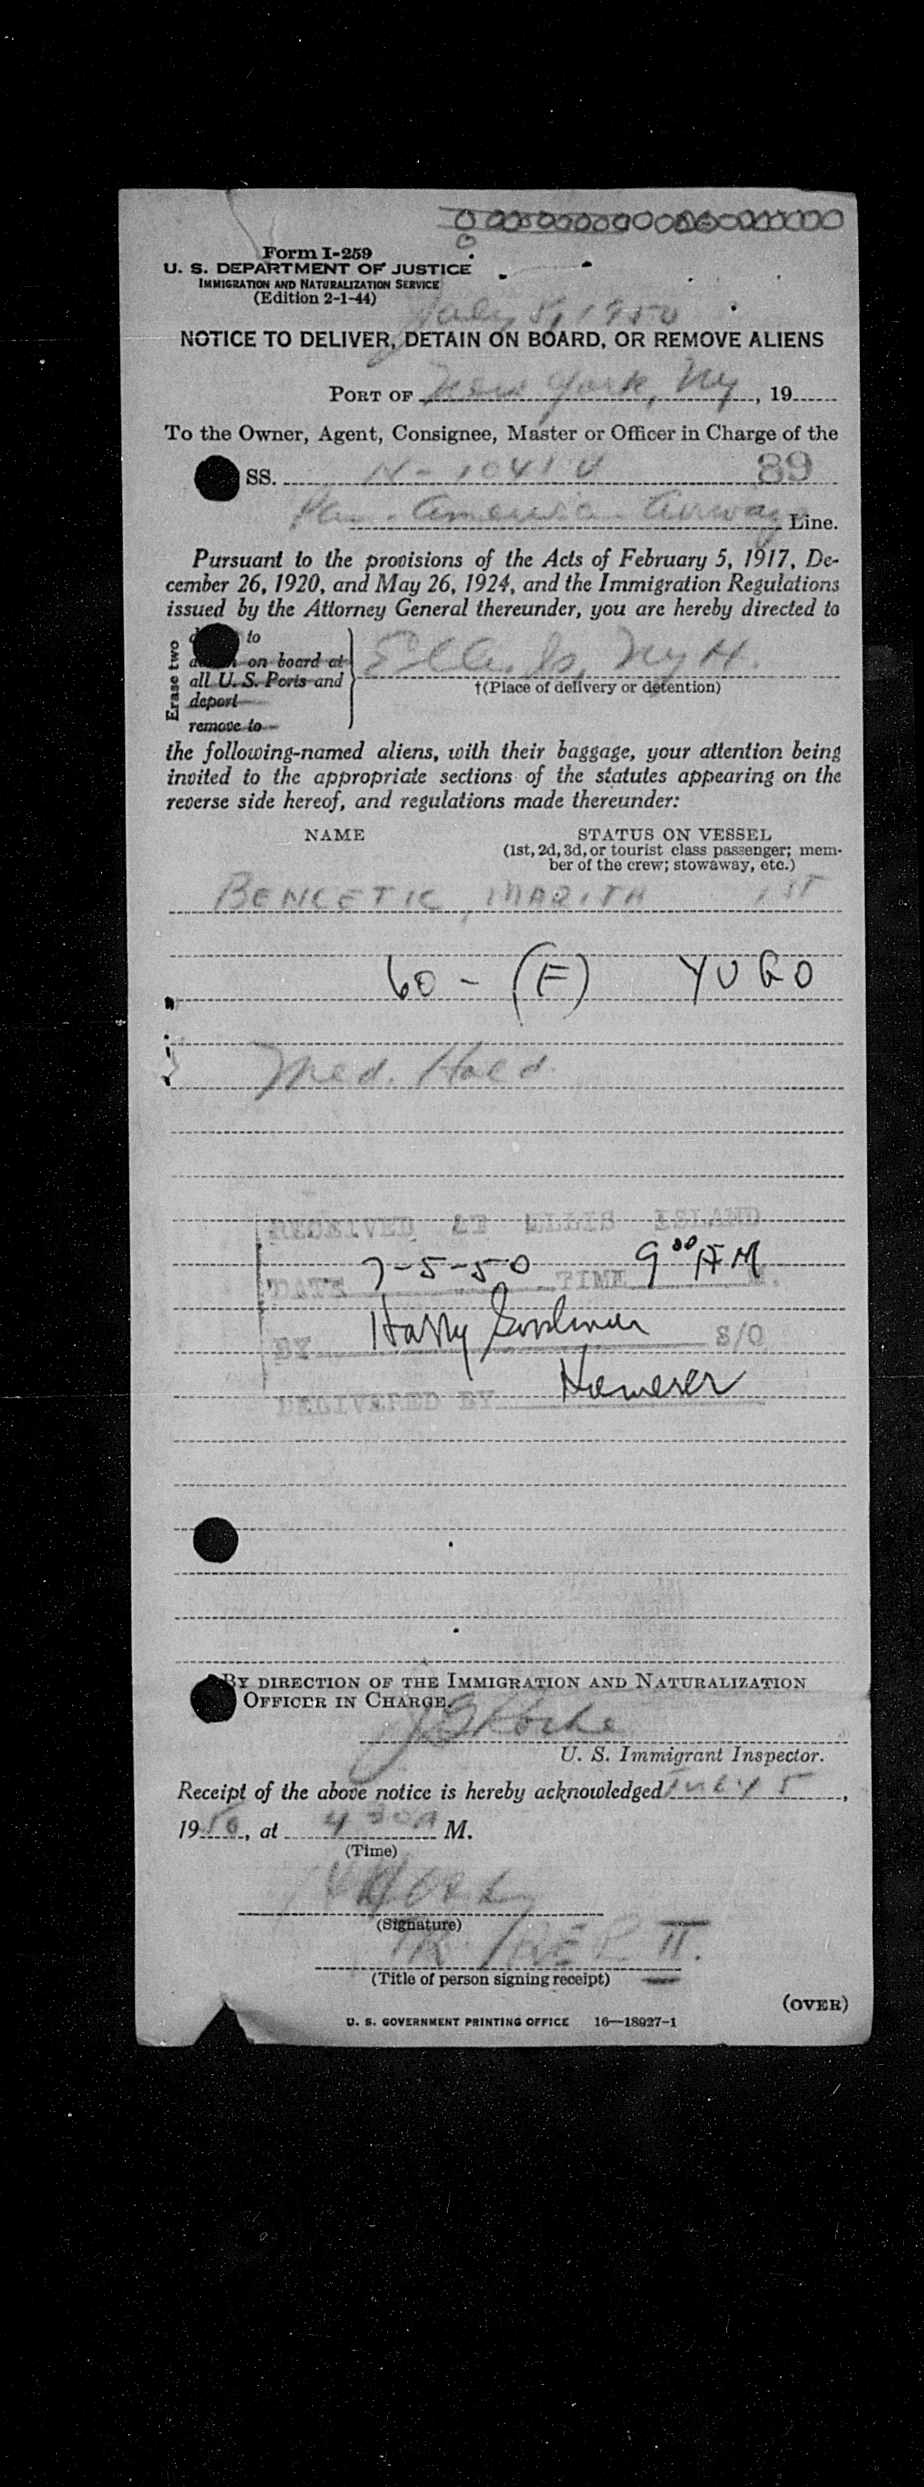 Form I-259
U. S. DEPARTMENT OF JUSTICE
IMMIGRATION AND NATURALIZATION SERVICE
(Edition 2-1-44)
July 5, 1950
NOTICE TO DELIVER, DETAIN ON BOARD, OR REMOVE ALIENS
PORT OF New York, Ny, 19
To the Owner, Agent, Consignee, Master or Officer in Charge of the
SS. 89
Pan. America Airways Line.
Pursuant to the provisions of the Acts of February 5, 1917, De-
cember 26, 1920, and May 26, 1924, and the Immigration Regulations
issued by the Attorney General thereunder, you are hereby directed to
Erase two
to
on board at
all U. S. Ports and
deport
remove to
Ellis Is, Ny H.
†(Place of delivery or detention)
the following-named aliens, with their baggage, your attention being
invited to the appropriate sections of the statutes appearing on the
reverse side hereof, and regulations made thereunder:
NAME STATUS ON VESSEL
(1st, 2d, 3d, or tourist class passenger; mem-
ber of the crew; stowaway, etc.)
BENCETIC, MARITA 1ST
60 - (F) YUGO
Med. Hold
RECEIVED AT ELLIS ISLAND
DATE 7-5-50 TIME 9 00 AM M.
BY Harry Goodman S/O
DELIVERED BY
BY DIRECTION OF THE IMMIGRATION AND NATURALIZATION
OFFICER IN CHARGE.
U. S. Immigrant Inspector.
Receipt of the above notice is hereby acknowledged July 5,
1950, at 4 30A M.
(Time)
(Signature)
II.
(Title of person signing receipt)
(OVER)
U. S. GOVERNMENT PRINTING OFFICE 16—18927-1